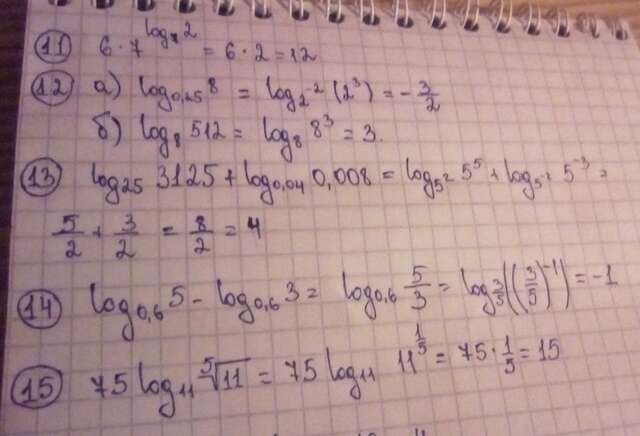 11 6 · 7^{log_7 2} = 6 · 2 = 12
12 а) log_{0,25} 8 = log_{2^{-2}} (2^3) = -3/2
б) log_8 512 = log_8 8^3 = 3.
13 log_{25} 3125 + log_{0,04} 0,008 = log_{5^2} 5^5 + log_{5^{-2}} 5^{-3} =
5/2 + 3/2 = 8/2 = 4
14 log_{0,6} 5 - log_{0,6} 3 = log_{0,6} 5/3 = log_{3/5} ((3/5)^{-1}) = -1
15 75 log_{11} ⁵√11 = 75 log_{11} 11^{1/5} = 75 · 1/5 = 15